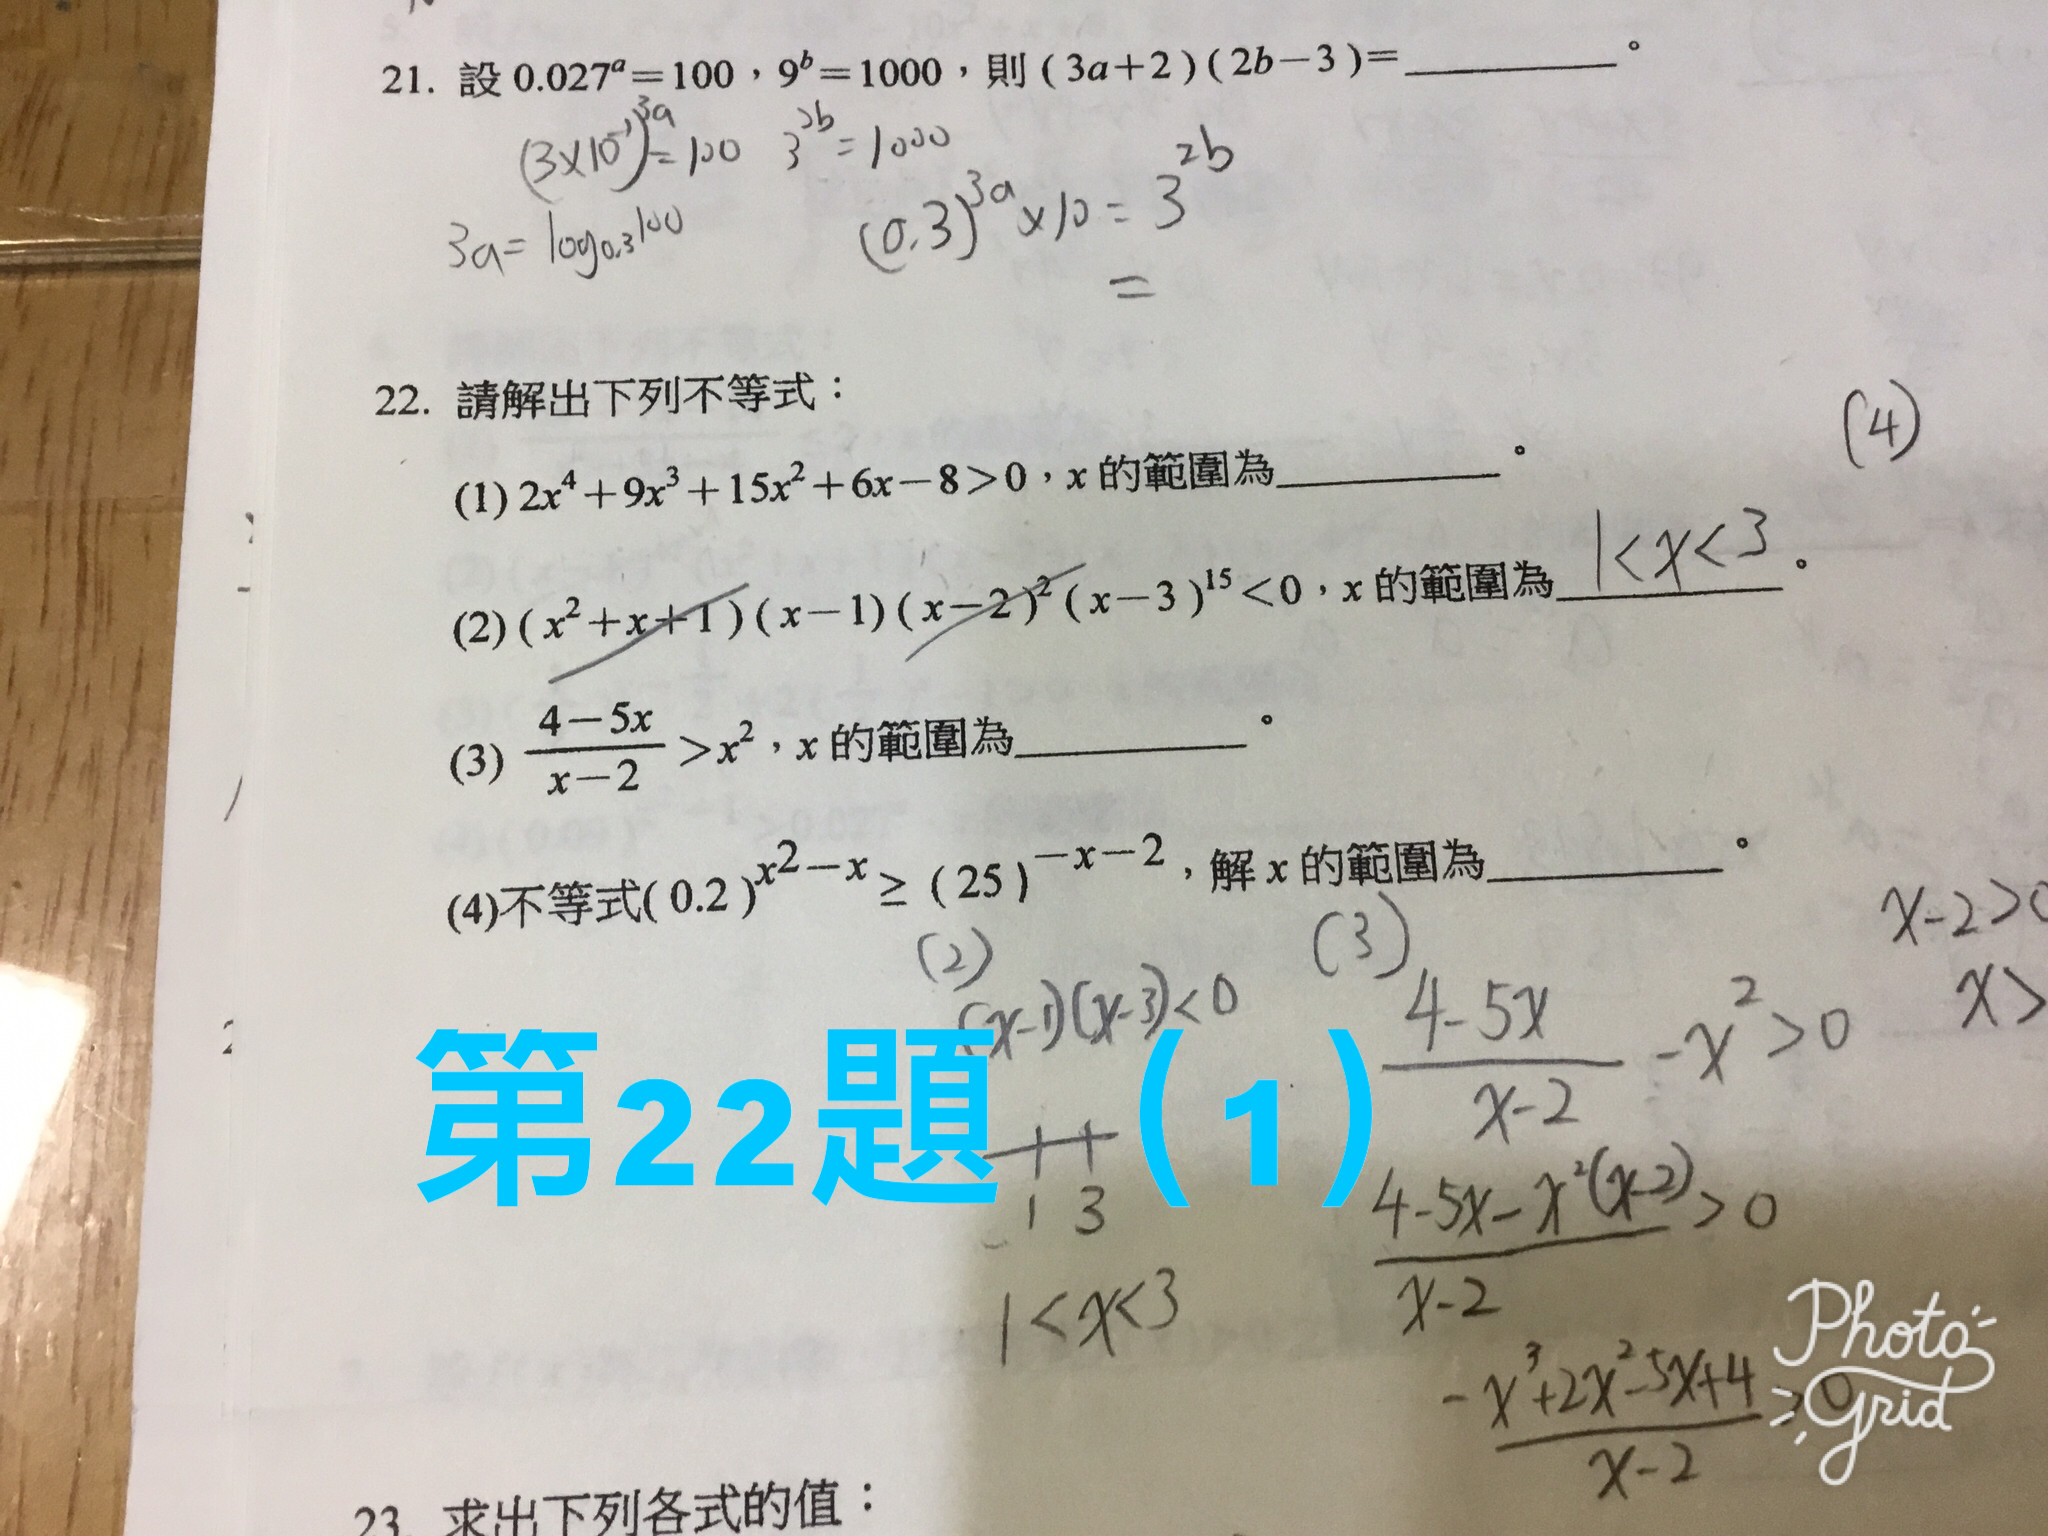 21. 設 0.027ᵃ=100,9ᵇ=1000,則 (3a+2)(2b-3)=________。
(3×10⁻¹)³ᵃ=100 3²ᵇ=1000
3a=log₀.₃100 (0.3)³ᵃ×10=3²ᵇ
=
22. 請解出下列不等式:
(4)
(1) 2x⁴+9x³+15x²+6x-8>0,x 的範圍為________。
(2) (x²+x+1)(x-1)(x-2)²(x-3)¹⁵<0,x 的範圍為 1<x<3。
(3) (4-5x)/(x-2) >x²,x 的範圍為________。
(4)不等式(0.2)^(x2-x) ≥ (25)^(-x-2),解 x 的範圍為________。
(2)
(x-1)(x-3)<0
1 3
1<x<3
(3)
(4-5x)/(x-2) -x²>0
(4-5x-x²(x-2))/(x-2) >0
(-x³+2x²-5x+4)/(x-2) >0
x-2>0
x>
第22題(1)
Photo
Grid
23. 求出下列各式的值: